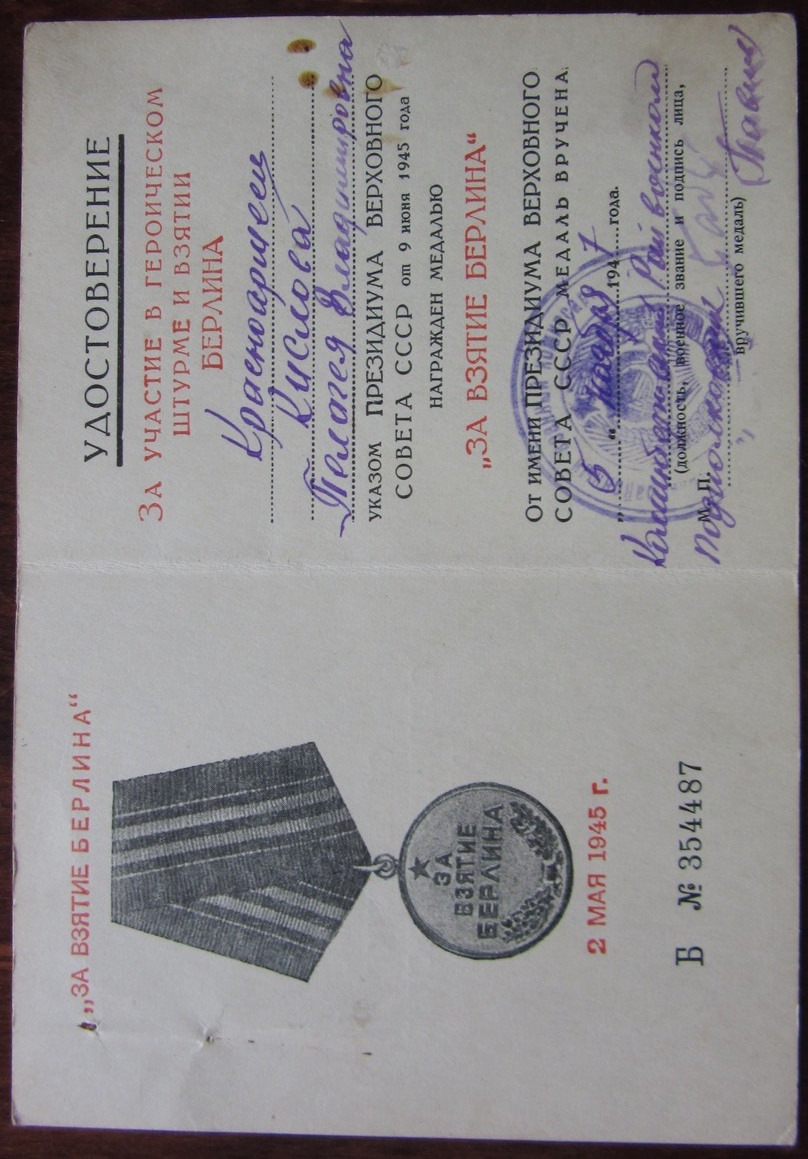 „ЗА ВЗЯТИЕ БЕРЛИНА“
ЗА
ВЗЯТИЕ
БЕРЛИНА
2 МАЯ 1945 г.
Б № 354487
УДОСТОВЕРЕНИЕ
ЗА УЧАСТИЕ В ГЕРОИЧЕСКОМ
ШТУРМЕ И ВЗЯТИИ
БЕРЛИНА
Красноармеец
Кислова
Пелагея Владимировна
УКАЗОМ ПРЕЗИДИУМА ВЕРХОВНОГО
СОВЕТА СССР от 9 июня 1945 года
НАГРАЖДЕН МЕДАЛЬЮ
„ЗА ВЗЯТИЕ БЕРЛИНА“
От имени ПРЕЗИДИУМА ВЕРХОВНОГО
СОВЕТА СССР МЕДАЛЬ ВРУЧЕНА
„5“ ноября 1947 года.
Райвоенком
(должность, военное звание и подпись лица,
М. П. Подполковник
вручившего медаль)